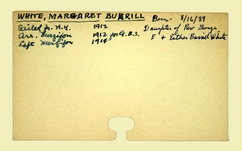 WHITE, MARGARET BURRILL Born 3/16/89
Sailed fr. N.Y. 1912 Daughter of Rev. George
Arr. Murzifoon 1912 for G.B.S. E + Esther Barrill White
Left Murzifoon 1914